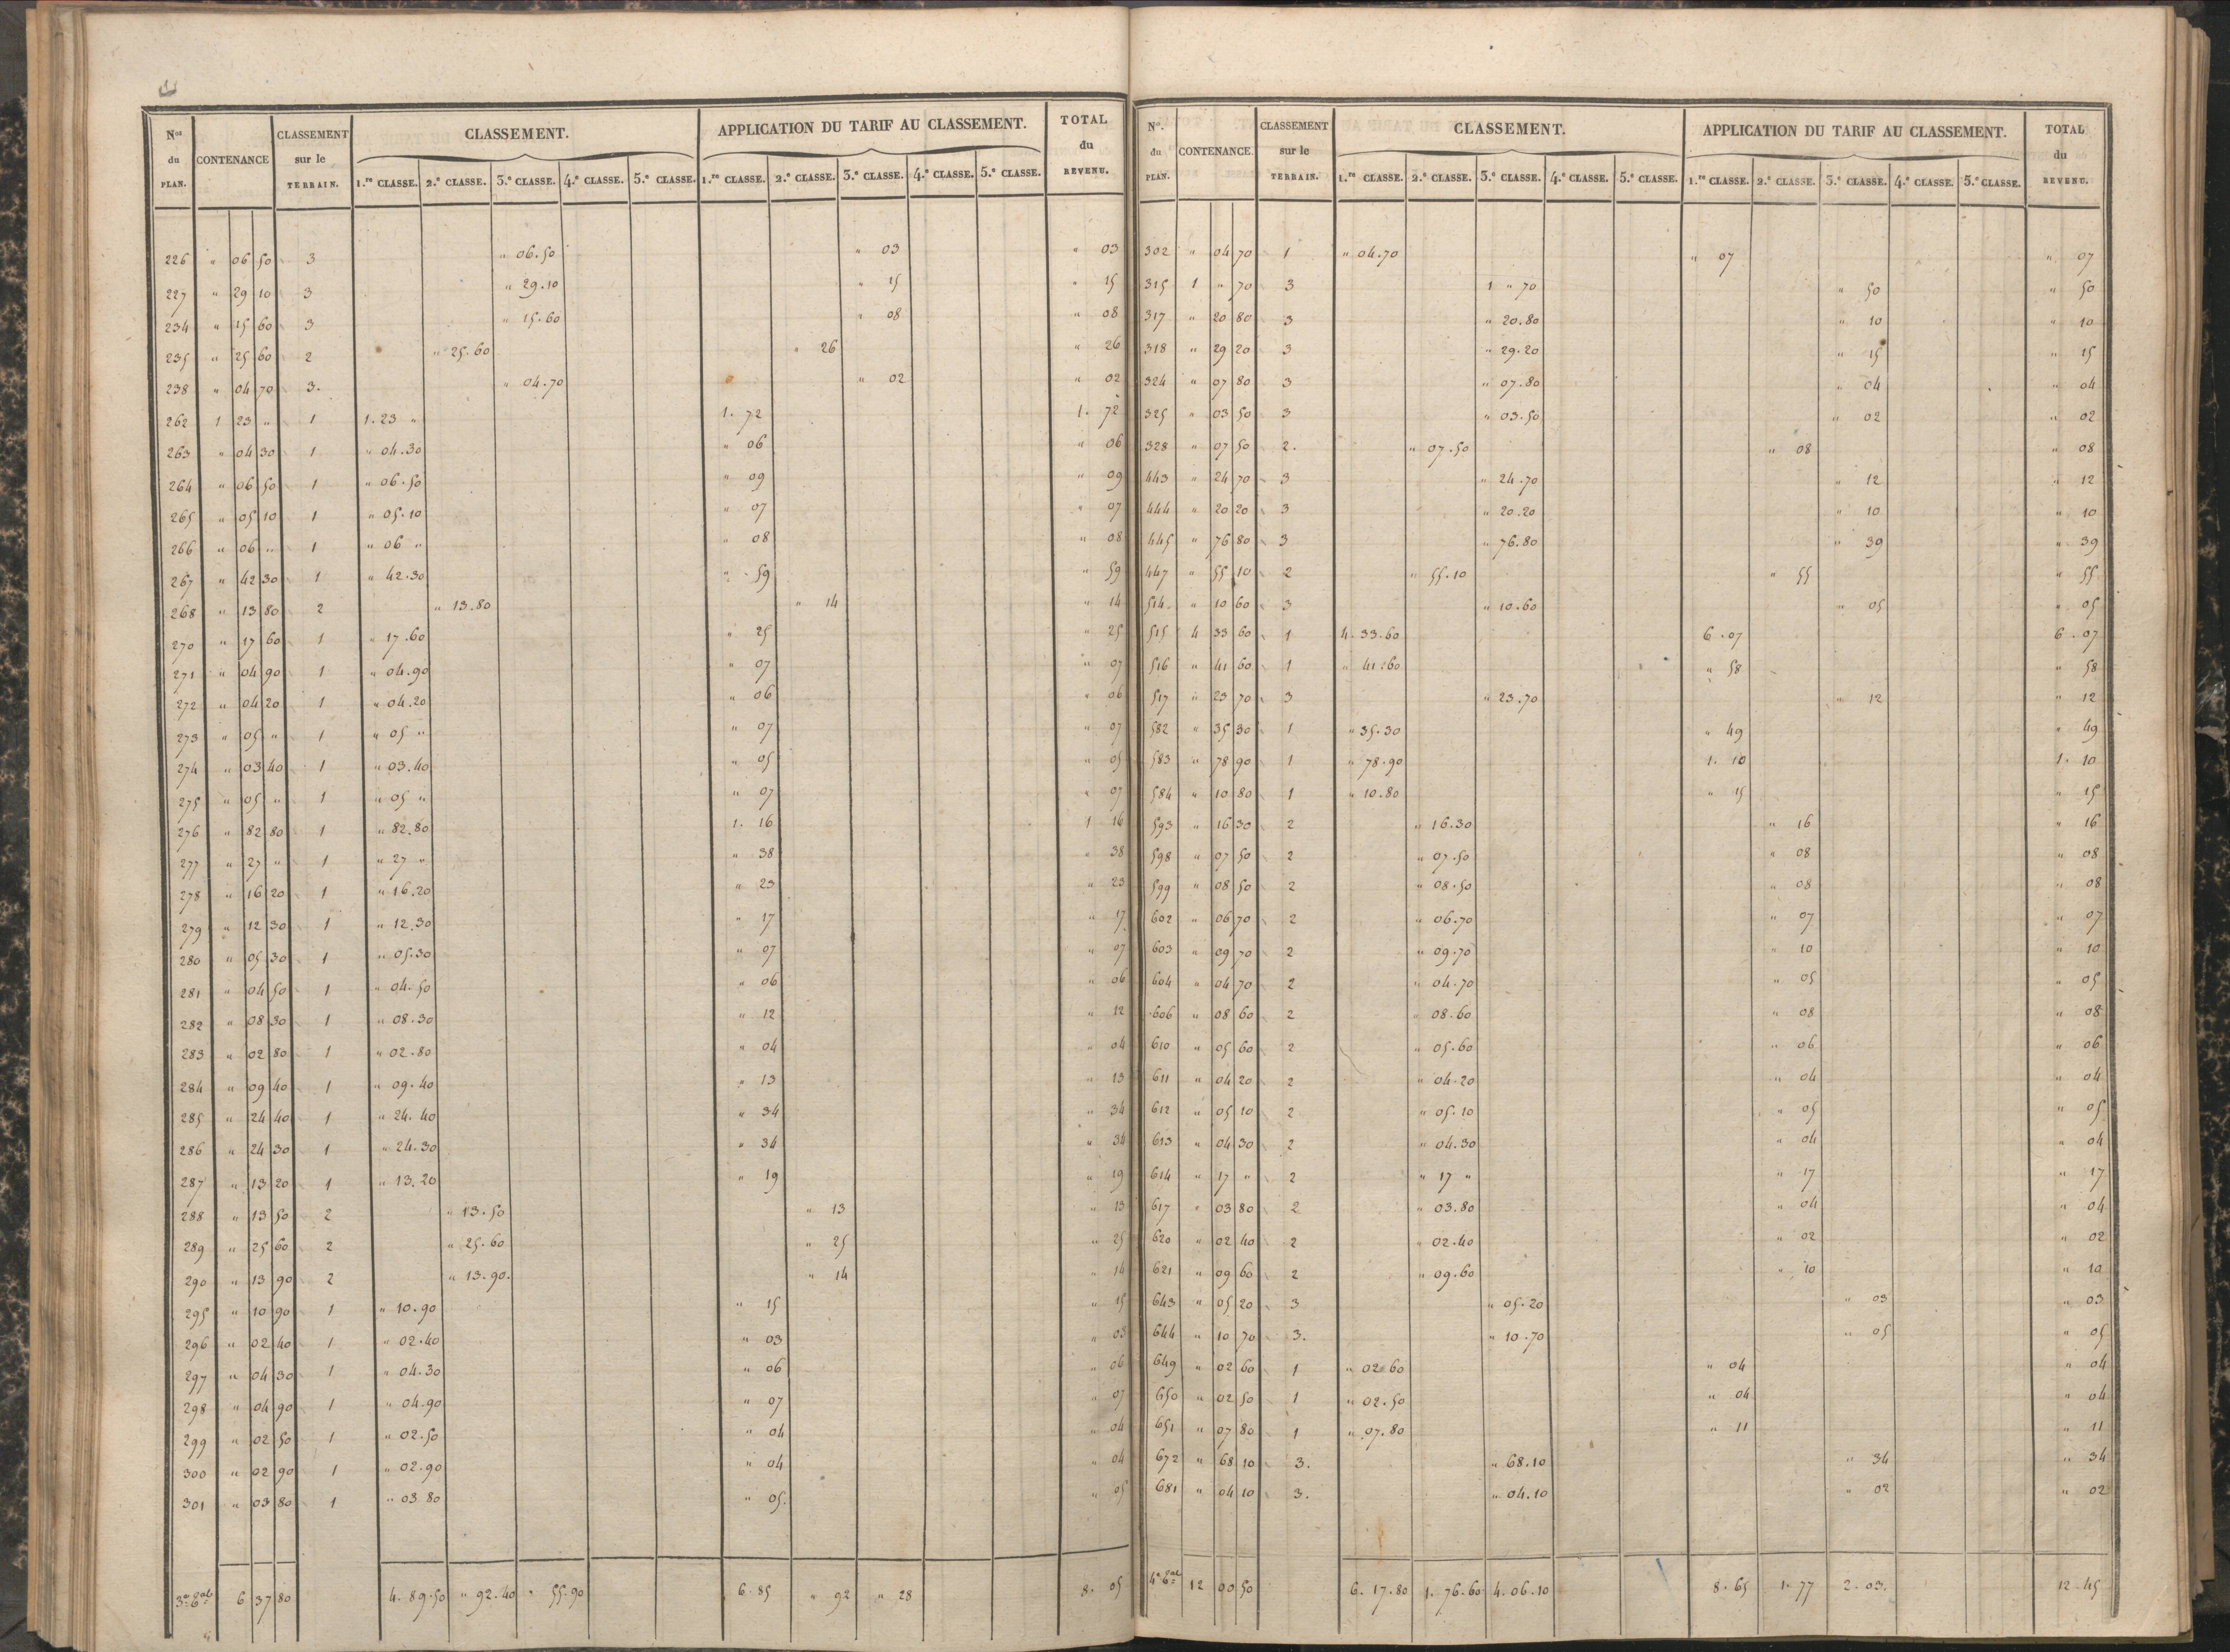 Nos du PLAN. CONTENANCE CLASSEMENT sur le TERRAIN. CLASSEMENT. APPLICATION DU TARIF AU CLASSEMENT. TOTAL du REVENU.
1.re CLASSE. 2.e CLASSE. 3.e CLASSE. 4.e CLASSE. 5.e CLASSE. 1.re CLASSE. 2.e CLASSE. 3.e CLASSE. 4.e CLASSE. 5.e CLASSE.
226 " 06 50 3 " 06.50 " 03 " 03
227 " 29 10 3 " 29.10 " 15 " 15
234 " 15 60 3 " 15.60 " 08 " 08
235 " 25 60 2 " 25.60 " 26 " 26
238 " 04 70 3. " 04.70 " 02 " 02
262 1 23 " 1 1.23 " 1. 72 1. 72
263 " 04 30 1 " 04.30 " 06 " 06
264 " 06 50 1 " 06.50 " 09 " 09
265 " 05 10 1 " 05.10 " 07 " 07
266 " 06 " 1 " 06 " " 08 " 08
267 " 42 30 1 " 42.30 " 59 " 59
268 " 13 80 2 " 13.80 " 14 " 14
270 " 17 60 1 " 17.60 " 25 " 25
271 " 04 90 1 " 04.90 " 07 " 07
272 " 04 20 1 " 04.20 " 06 " 06
273 " 05 " 1 " 05 " " 07 " 07
274 " 03 40 1 " 03.40 " 05 " 05
275 " 05 " 1 " 05 " " 07 " 07
276 " 82 80 1 " 82.80 1. 16 1 16
277 " 27 " 1 " 27 " " 38 " 38
278 " 16 20 1 " 16.20 " 23 " 23
279 " 12 30 1 " 12.30 " 17 " 17
280 " 05 30 1 " 05.30 " 07 " 07
281 " 04 50 1 " 04.50 " 06 " 06
282 " 08 30 1 " 08.30 " 12 " 12
283 " 02 80 1 " 02.80 " 04 " 04
284 " 09 40 1 " 09.40 " 13 " 13
285 " 24 40 1 " 24.40 " 34 " 34
286 " 24 30 1 " 24.30 " 34 " 34
287 " 13 20 1 " 13.20 " 19 " 19
288 " 13 50 2 " 13.50 " 13 " 13
289 " 25 60 2 " 25.60 " 25 " 25
290 " 13 90 2 " 13.90. " 14 " 14
295 " 10 90 1 " 10.90 " 15 " 15
296 " 02 40 1 " 02.40 " 03 " 03
297 " 04 30 1 " 04.30 " 06 " 06
298 " 04 90 1 " 04.90 " 07 " 07
299 " 02 50 1 " 02.50 " 04 " 04
300 " 02 90 1 " 02.90 " 04 " 04
301 " 03 80 1 " 03 80 " 05. " 05
6 37 80 4.89.50 " 92.40 " 55.90 6.85 " 92 " 28 8. 05
No. du PLAN. CONTENANCE. CLASSEMENT sur le TERRAIN. CLASSEMENT. APPLICATION DU TARIF AU CLASSEMENT. TOTAL du REVENU.
1.re CLASSE. 2.e CLASSE. 3.e CLASSE. 4.e CLASSE. 5.e CLASSE. 1.re CLASSE. 2.e CLASSE. 3.e CLASSE. 4.e CLASSE. 5.e CLASSE.
302 " 04 70 1 " 04.70 " 07 " 07
315 1 " 70 3 1 " 70 " 50 " 50
317 " 20 80 3 " 20.80 " 10 " 10
318 " 29 20 3 " 29.20 " 15 " 15
324 " 07 80 3 " 07.80 " 04 " 04
325 " 03 50 3 " 03.50 " 02 " 02
328 " 07 50 2. " 07.50 " 08 " 08
443 " 24 70 3 " 24.70 " 12 " 12
444 " 20 20 3 " 20.20 " 10 " 10
445 " 76 80 3 " 76.80 " 39 " 39
447 " 55 10 2 " 55.10 " 55 " 55
514. " 10 60 3 " 10.60 " 05 " 05
515 4 33 60 1 4.33.60 6.07 6.07
516 " 41 60 1 " 41.60 " 58 " 58
517 " 23 70 3 " 23.70 " 12 " 12
582 " 35 30 1 " 35.30 " 49 " 49
583 " 78 90 1 " 78.90 1. 10 1. 10
584 " 10 80 1 " 10.80 " 15 " 15
593 " 16 30 2 " 16.30 " 16 " 16
598 " 07 50 2 " 07.50 " 08 " 08
599 " 08 50 2 " 08.50 " 08 " 08
602 " 06 70 2 " 06.70 " 07 " 07
603 " 09 70 2 " 09.70 " 10 " 10
604 " 04 70 2 " 04.70 " 05 " 05
606 " 08 60 2 " 08.60 " 08 " 08
610 " 05 60 2 " 05.60 " 06 " 06
611 " 04 20 2 " 04.20 " 04 " 04
612 " 05 10 2 " 05.10 " 05 " 05
613 " 04 30 2 " 04.30 " 04 " 04
614 " 17 " 2 " 17 " " 17 " 17
617 " 03 80 2 " 03.80 " 04 " 04
620 " 02 40 2 " 02.40 " 02 " 02
621 " 09 60 2 " 09.60 " 10 " 10
643 " 05 20 3 " 05.20 " 03 " 03
644 " 10 70 3. " 10.70 " 05 " 05
649 " 02 60 1 " 02 60 " 04 " 04
650 " 02 50 1 " 02.50 " 04 " 04
651 " 07 80 1 " 07.80 " 11 " 11
672 " 68 10 3. " 68.10 " 34 " 34
681 " 04 10 3. " 04.10 " 02 " 02
12 00 50 6.17.80 1.76.60 4.06.10 8.65 1.77 2.03. 12.45